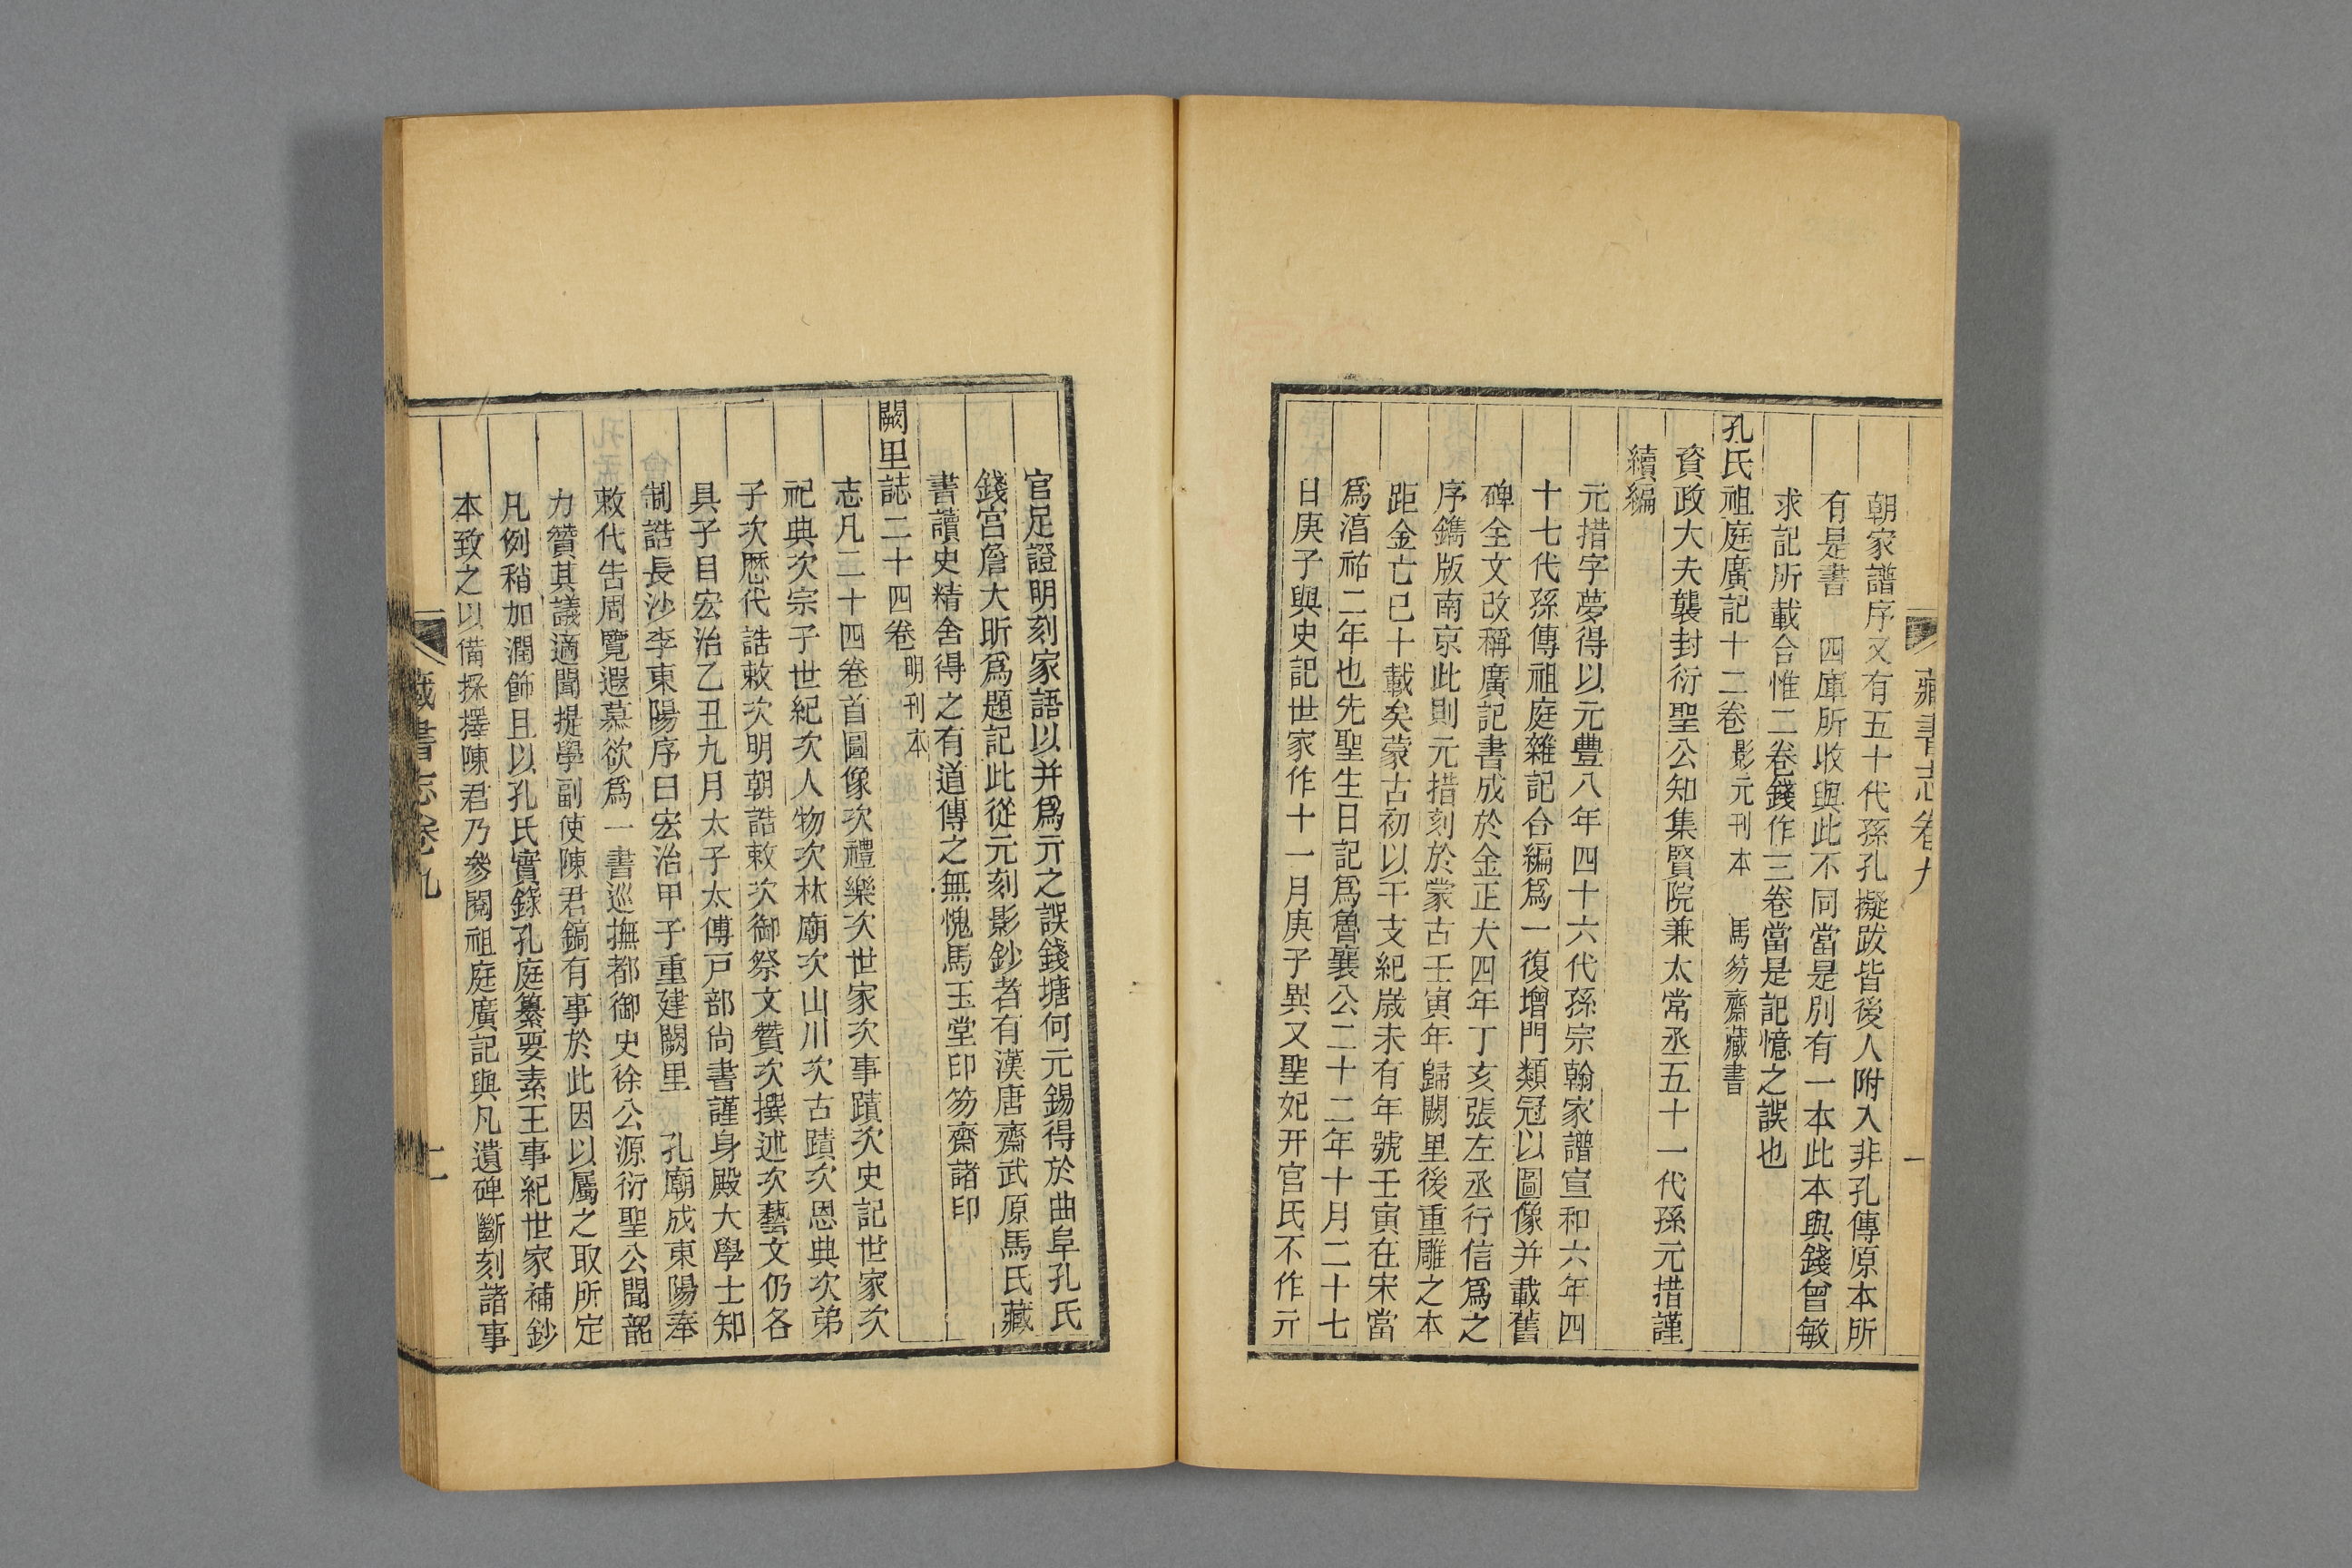 藏書志卷九
一
朝家譜序又有五十代孫孔擬跋皆後人附入非孔傳原本所
有是書　四庫所收與此不同當是別有一本此本與錢曾敏
求記所載合惟二卷錢作三卷當是記憶之誤也
孔氏祖庭廣記十二卷影元刊本　馬笏齋藏書
資政大夫襲封衍聖公知集賢院兼太常丞五十一代孫元措謹
續編
元措字夢得以元豐八年四十六代孫宗翰家譜宣和六年四
十七代孫傳祖庭雜記合編爲一復增門類冠以圖像并載舊
碑全文改稱廣記書成於金正大四年丁亥張左丞行信爲之
序鐫版南京此則元措刻於蒙古壬寅年歸闕里後重雕之本
距金亡已十載矣蒙古初以干支紀歲未有年號壬寅在宋當
爲淳祐二年也先聖生日記爲魯襄公二十二年十月二十七
日庚子與史記世家作十一月庚子異又聖妃开官氏不作亓
官足證明刻家語以并爲亓之誤錢塘何元錫得於曲阜孔氏
錢宮詹大昕爲題記此從元刻影鈔者有漢唐齋武原馬氏藏
書讀史精舍得之有道傳之無愧馬玉堂印笏齋諸印
闕里誌二十四卷明刊本
志凡二十四卷首圖像次禮樂次世家次事蹟次史記世家次
祀典次宗子世紀次人物次林廟次山川次古蹟次恩典次弟
子次歷代誥敕次明朝誥敕次御祭文贊次撰述次藝文仍各
具子目宏治乙丑九月太子太傅戸部尚書謹身殿大學士知
制誥長沙李東陽序曰宏治甲子重建闕里　孔廟成東陽奉
敕代告周覽遐慕欲爲一書巡撫都御史徐公源衍聖公聞韶
力贊其議適聞提學副使陳君鎬有事於此因以屬之取所定
凡例稍加潤飾且以孔氏實錄孔庭纂要素王事紀世家補鈔
本致之以備採擇陳君乃參閱祖庭廣記與凡遺碑斷刻諸事
藏書志卷九